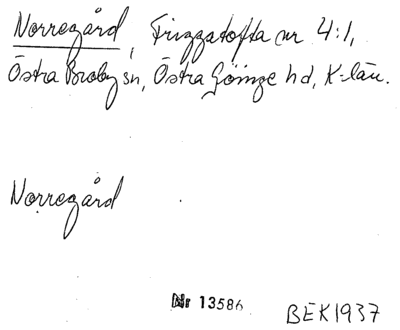 Norregård, Friggatofta nr 4:1,
Östra Broby sn, Östra Göinge hd, K-län.
Norregård
Nr 13586
BEK1937